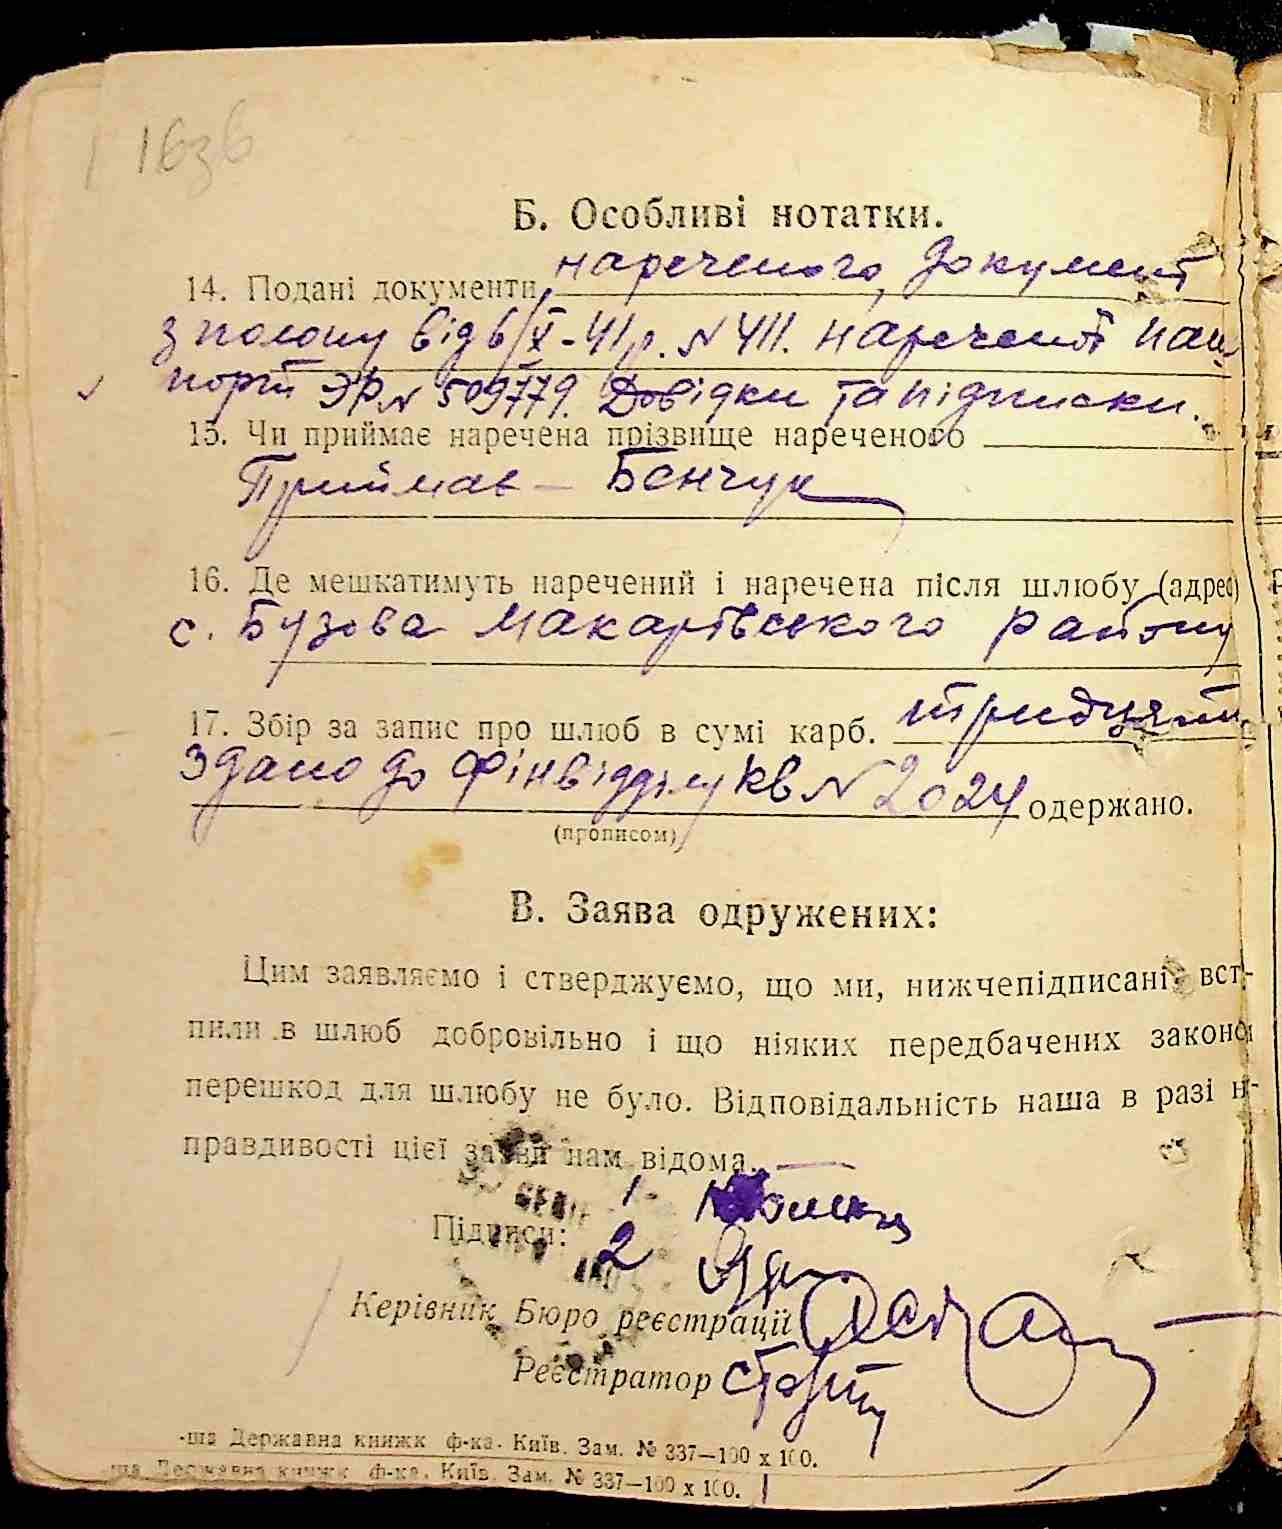 163б
Б. Особливі нотатки.
14. Подані документи нареченого, документ
з полону від 6/X-41р. №411. нареченої паш
порт ЭР№ 509779. Довідки та підписки.
15. Чи приймає наречена прізвище нареченого
Приймає – Бенчук
16. Де мешкатимуть наречений і наречена після шлюбу (адрес)
с. Бузова Макарівського району
17. Збір за запис про шлюб в сумі карб. тридцять
Здано до Фінвідділу кв № 2024 одержано.
(прописом)
В. Заява одружених:
Цим заявляємо і стверджуємо, що ми, нижчепідписані, всту-
пили в шлюб добровільно і що ніяких передбачених законом
перешкод для шлюбу не було. Відповідальність наша в разі не-
правдивості цієї заяви нам відома.
1
Підписи: 2
Керівник Бюро реєстрації
Реєстратор
-ша Державна книжк ф-ка. Київ. Зам. № 337—100 х 100.
-ша Державна книжк ф-ка. Київ. Зам. № 337—100 х 100.